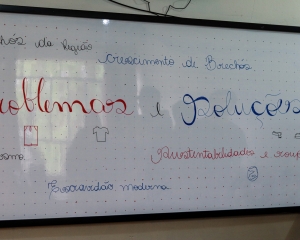 chós da Região
Crescimento de Brechós
roblemas e Soluções
smo.
Sustentabilidades e roup
Escravidão moderna